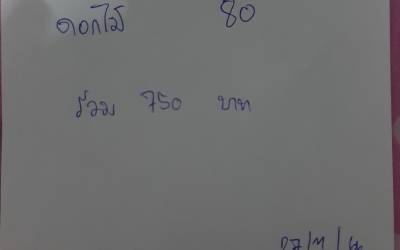 ดอกไม้ 80
รวม 750 บาท